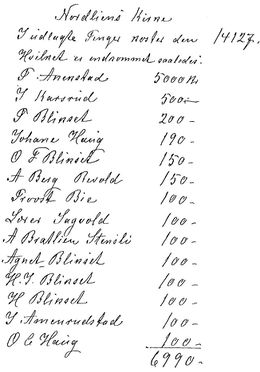 Nordliens Kirne
I udlagte Penger koster den 14127.
Hvilket er indkommet saaledes.
T. Anenstad 5000 Kr
J Karsrud 500 —
P Blinset 200 —
Johane Haug 190 —
O F Blinset 150 —
A Berg Revold 150 —
Provst Bie 100 —
Lover Sagvold 100 —
A Brattlien Stensli 100 —
Agnet Blinset 100 —
H. J. Blinset 100 —
H Blinset 100 —
J. Amenrudstad 100 —
O E Haug 100 —
6990 —